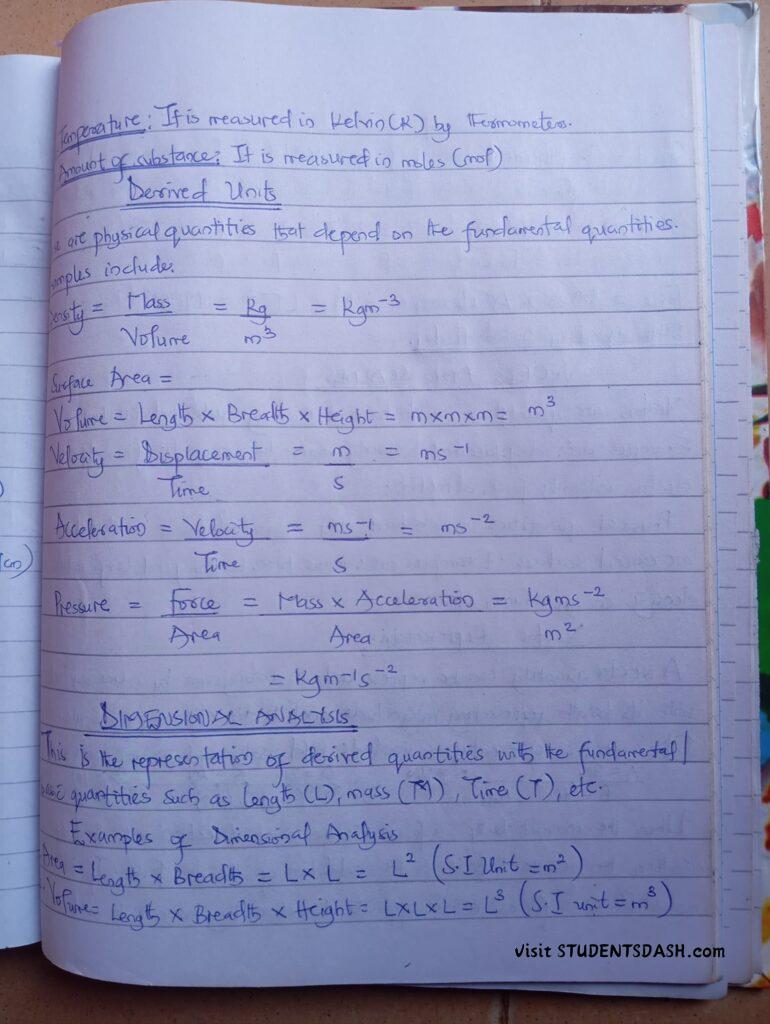 Temperature: It is measured in Kelvin(K) by Thermometers.
Amount of substance: It is measured in moles (mol)
Derived Units
are physical quantities that depend on the fundamental quantities.
mples include.
Density = Mass/Volume = kg/m³ = kgm⁻³
Surface Area =
Volume = Length × Breadth × Height = m×m×m = m³
Velocity = Displacement/Time = m/s = ms⁻¹
Acceleration = Velocity/Time = ms⁻¹/s = ms⁻²
Pressure = Force/Area = Mass × Acceleration/Area = kgms⁻²/m²
= kgm⁻¹s⁻²
DIMENSIONAL ANALYSIS
This is the representation of derived quantities with the fundamental/
basic quantities such as Length (L), mass (M), Time (T), etc.
Examples of Dimensional Analysis
Area = Length × Breadth = L×L = L² (S.I Unit = m²)
Volume = Length × Breadth × Height = L×L×L = L³ (S.I unit = m³)
Visit STUDENTSDASH.com